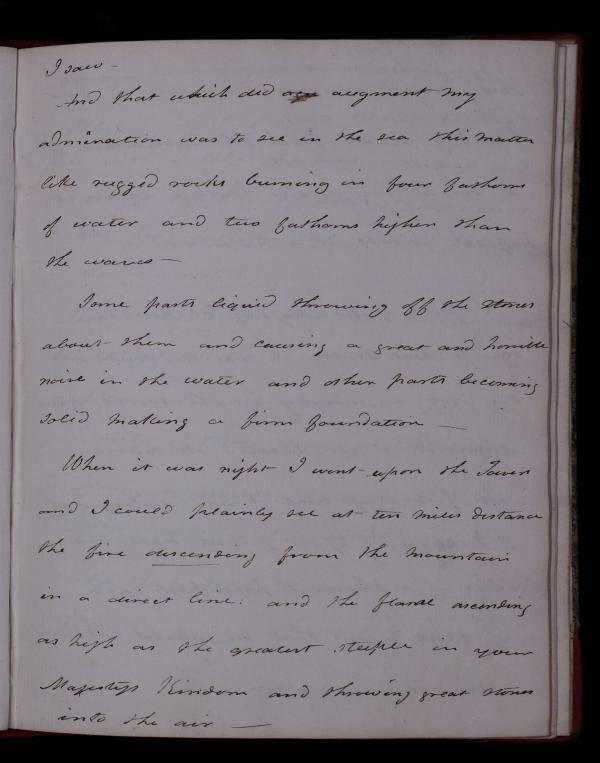 I saw -
And that which did augment my
admination was to see in the sea this matter
like rugged rocks burning in four fathoms
of water and two fathoms higher than
the waves —
Some parts liquid throwing off the stones
about them and causing a great and horrible
noise in the water and other parts becoming
solid making a firm foundation —
When it was night I went upon the Tower
and I could plainly see at ten miles distance
the fire descending from the mountain
in a direct line: and the flame ascending
as high as the greatest steeple in your
Majestys Kindom and throwing great stones
into the air —